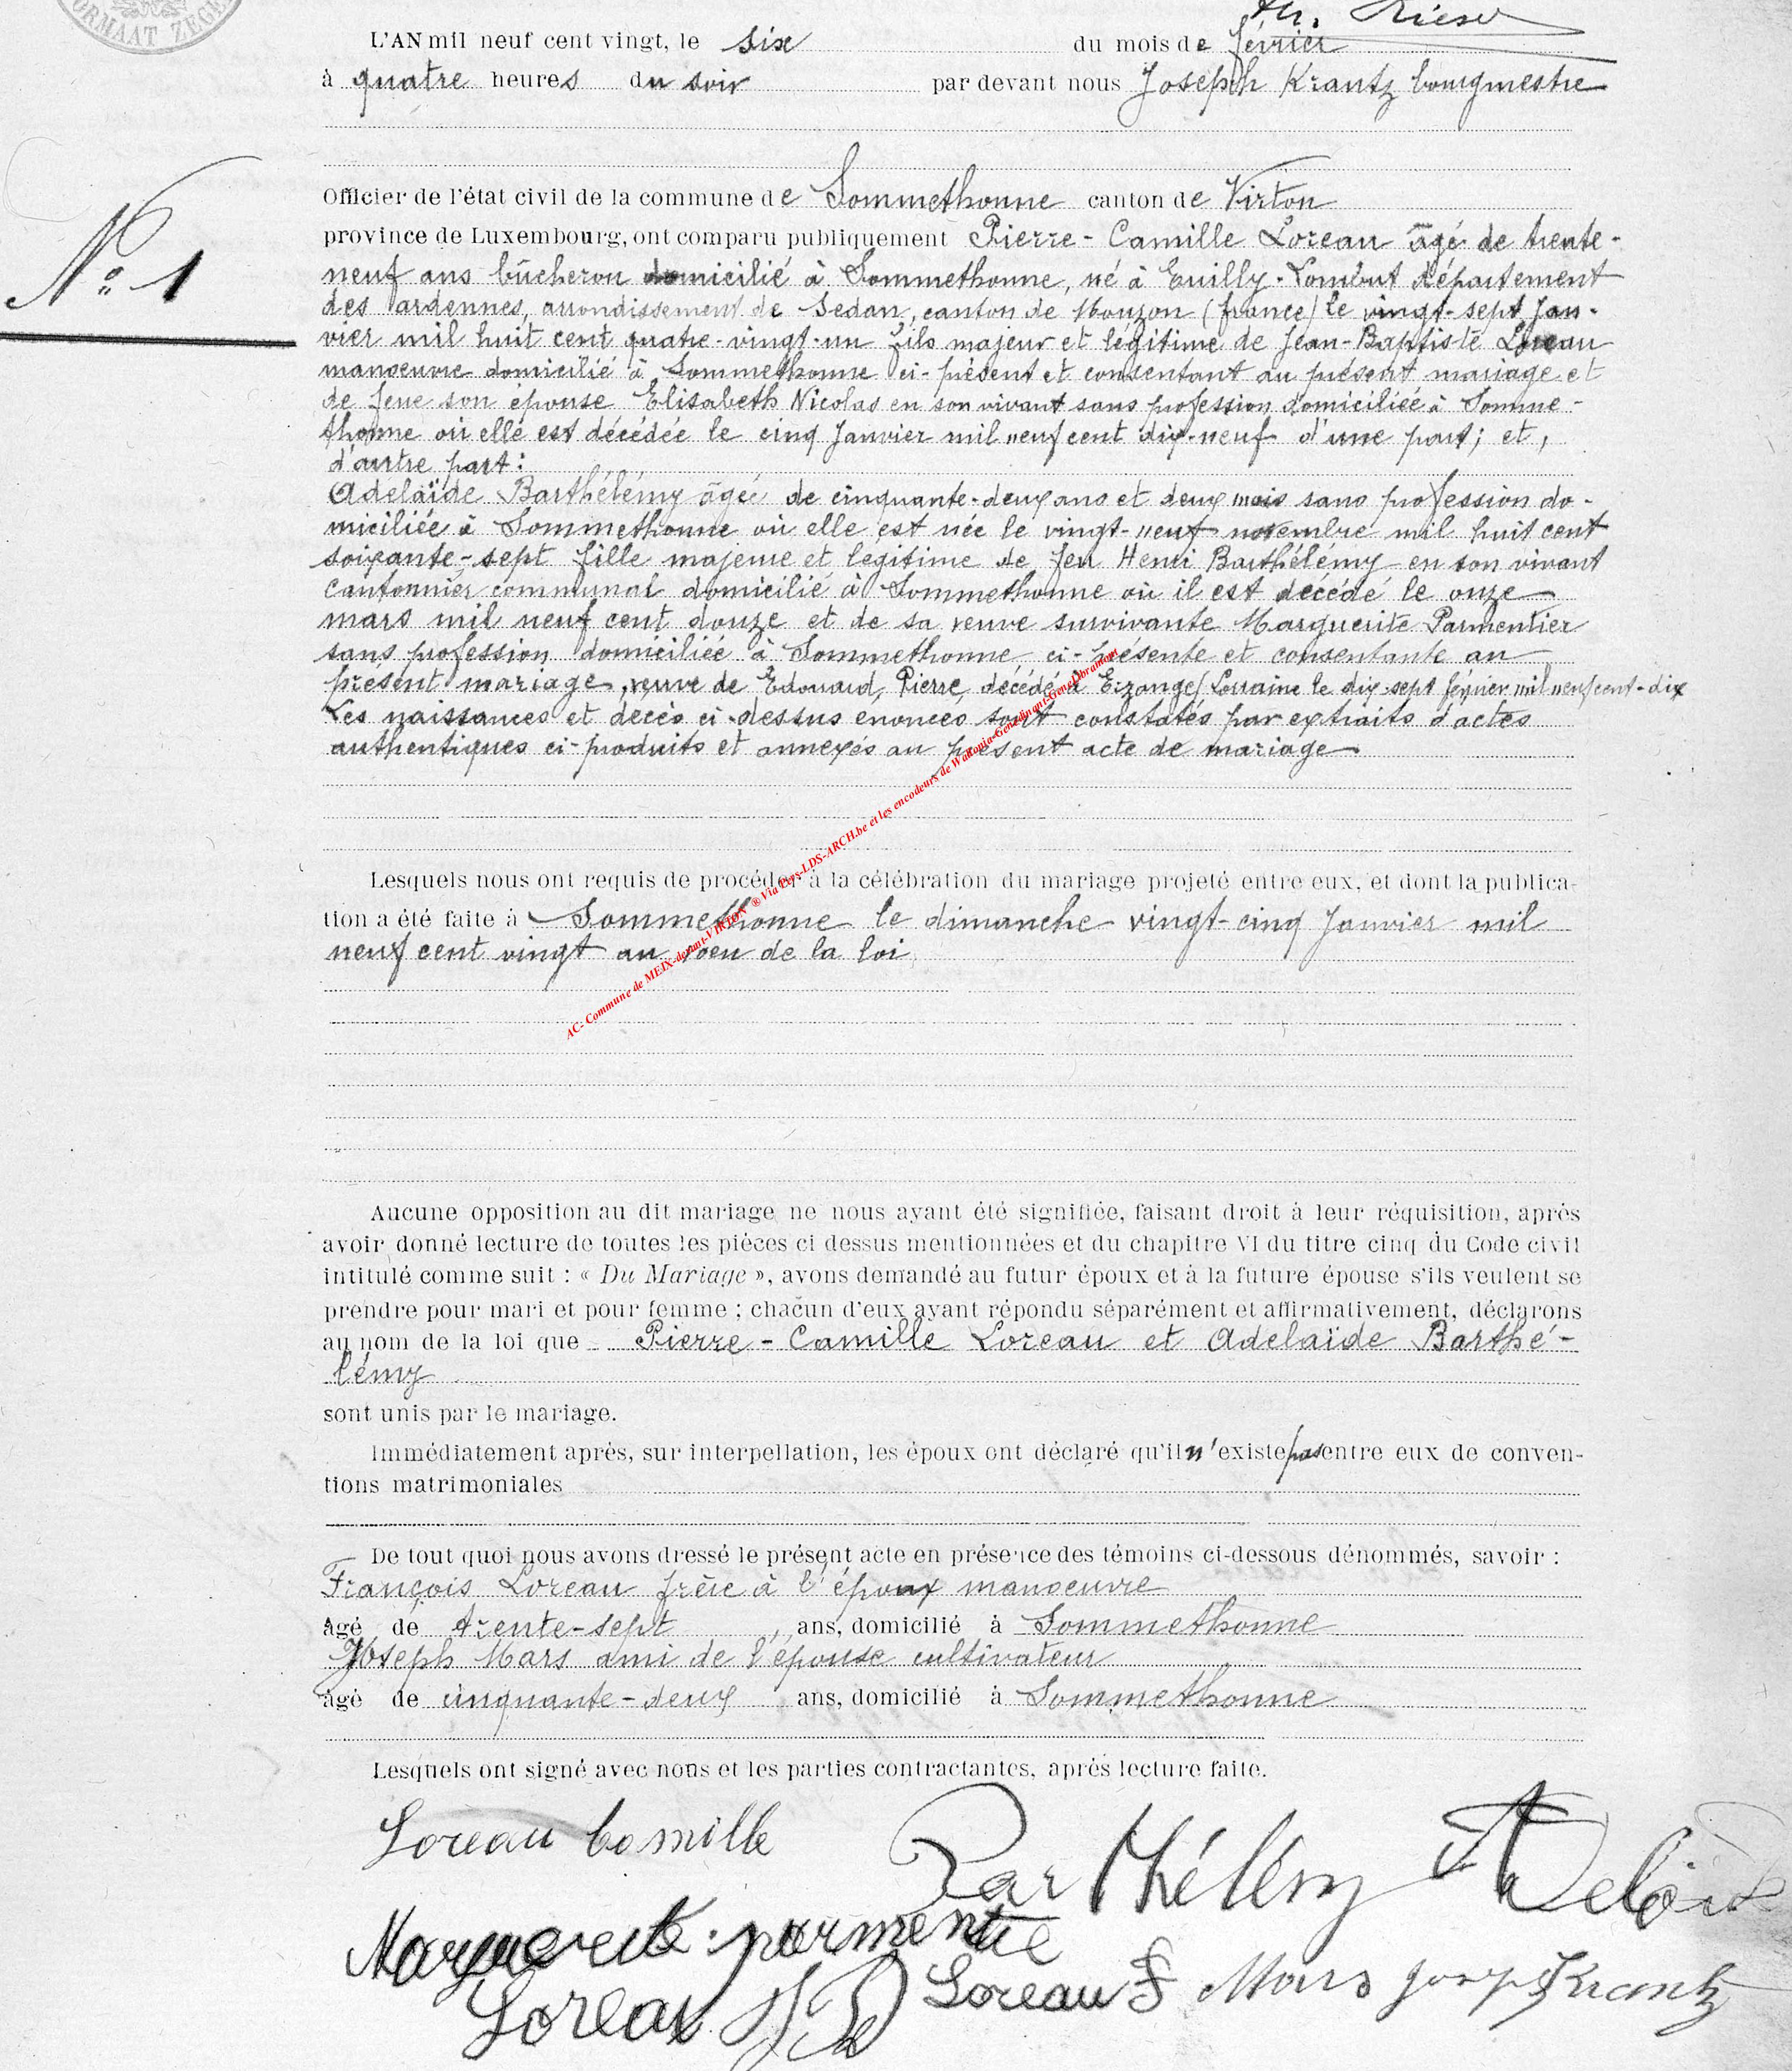 ORMAAT ZEGE
L'AN mil neuf cent vingt, le six du mois de février
à quatre heures du soir par devant nous Joseph Krantz bourgmestre
Officier de l'état civil de la commune de Sommethonne canton de Virton
N° 1
province de Luxembourg, ont comparu publiquement Pierre-Camille Loreau âgé de trente-
neuf ans bûcheron domicilié à Sommethonne, né à Euilly-Lombut département
des ardennes, arrondissement de Sedan, canton de Mouzon (france) le vingt-sept Jan-
vier mil huit cent quatre-vingt-un fils majeur et légitime de Jean-Baptiste Loreau
manœuvre domicilié à Sommethonne ci-présent et consentant au présent mariage et
de feue son épouse Elisabeth Nicolas en son vivant sans profession domiciliée à Somme-
thonne où elle est décédée le cinq Janvier mil neuf cent dix-neuf d'une part; et,
d'autre part:
Adelaïde Barthélémy âgée de cinquante-deux ans et deux mois sans profession do-
miciliée à Sommethonne où elle est née le vingt-neuf novembre mil huit cent
soixante-sept fille majeure et legitime de feu Henri Barthélémy en son vivant
cantonnier communal domicilié à Sommethonne où il est décédé le onze
mars mil neuf cent douze et de sa veuve survivante Marguerite Parmentier
sans profession domiciliée à Sommethonne ci-présente et consentante au
présent mariage, veuve de Edouard, Pierre, décédé à Erzange/Lorraine le dix-sept février mil neuf cent-dix
Les naissances et décès ci-dessus énoncés sont constatés par extraits d'actes
authentiques ci-produits et annexés au présent acte de mariage
AC- Commune de MEIX-devant-VIRTON ® Via Pies-LDS-ARCH.be et les encodeurs de Wallonia-Genedinant-Genealbramont
Lesquels nous ont requis de procéder à la célébration du mariage projeté entre eux, et dont la publica-
tion a été faite à Sommethonne le dimanche vingt-cinq Janvier mil
neuf cent vingt au voeu de la loi
Aucune opposition au dit mariage ne nous ayant été signifiée, faisant droit à leur réquisition, après
avoir donné lecture de toutes les pièces ci dessus mentionnées et du chapitre VI du titre cinq du Code civil
intitulé comme suit : « Du Mariage », avons demandé au futur époux et à la future épouse s'ils veulent se
prendre pour mari et pour femme ; chacun d'eux ayant répondu séparément et affirmativement, déclarons
au nom de la loi que Pierre-Camille Loreau et Adelaïde Barthé-
lémy
sont unis par le mariage.
Immédiatement après, sur interpellation, les époux ont déclaré qu'il n'existe pas entre eux de conven-
tions matrimoniales
De tout quoi nous avons dressé le présent acte en présence des témoins ci-dessous dénommés, savoir :
François Loreau frère à l'époux manoeuvre
âgé de trente-sept ans, domicilié à Sommethonne
Joseph Mars ami de l'épouse cultivateur
âgé de cinquante-deux ans, domicilié à Sommethonne
Lesquels ont signé avec nous et les parties contractantes, après lecture faite.
Loreau Camille Barthélémy Adelaïde
Marguerite parmentie
Loreau J B Loreau F Mars Joseph Krantz